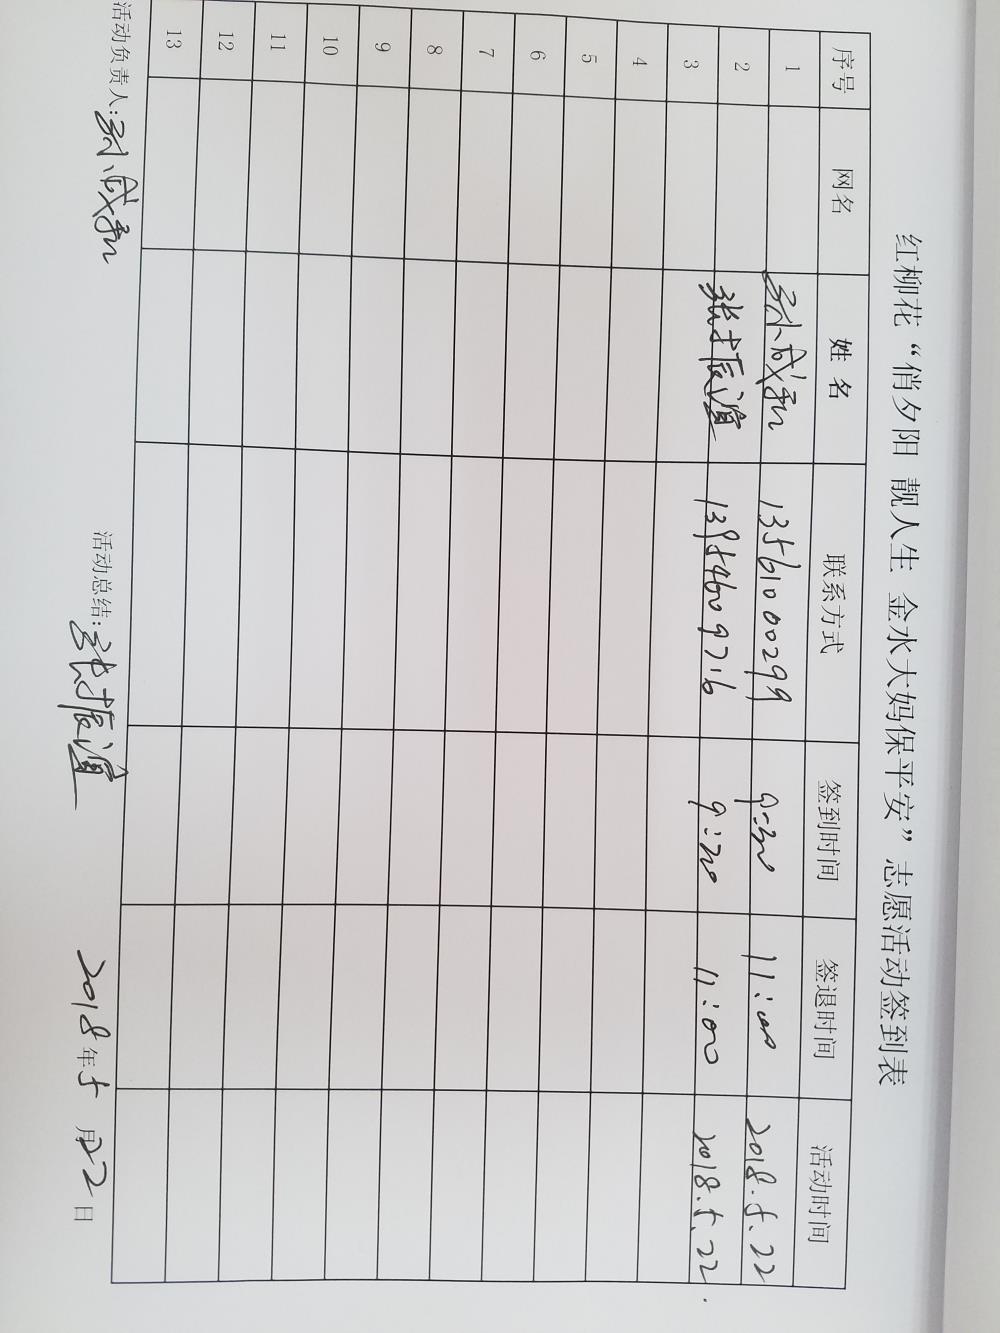 红柳花“俏夕阳 靓人生 金水大妈保平安”志愿活动签到表
序号 网名 姓 名 联系方式 签到时间 签退时间 活动时间
1 13561000299 9:30 11:00 2018.5.22
2 张振谊 13954609716 9:30 11:00 2018.5.22
3
4
5
6
7
8
9
10
11
12
13
活动负责人: 活动总结:张振谊 2018年5月22日